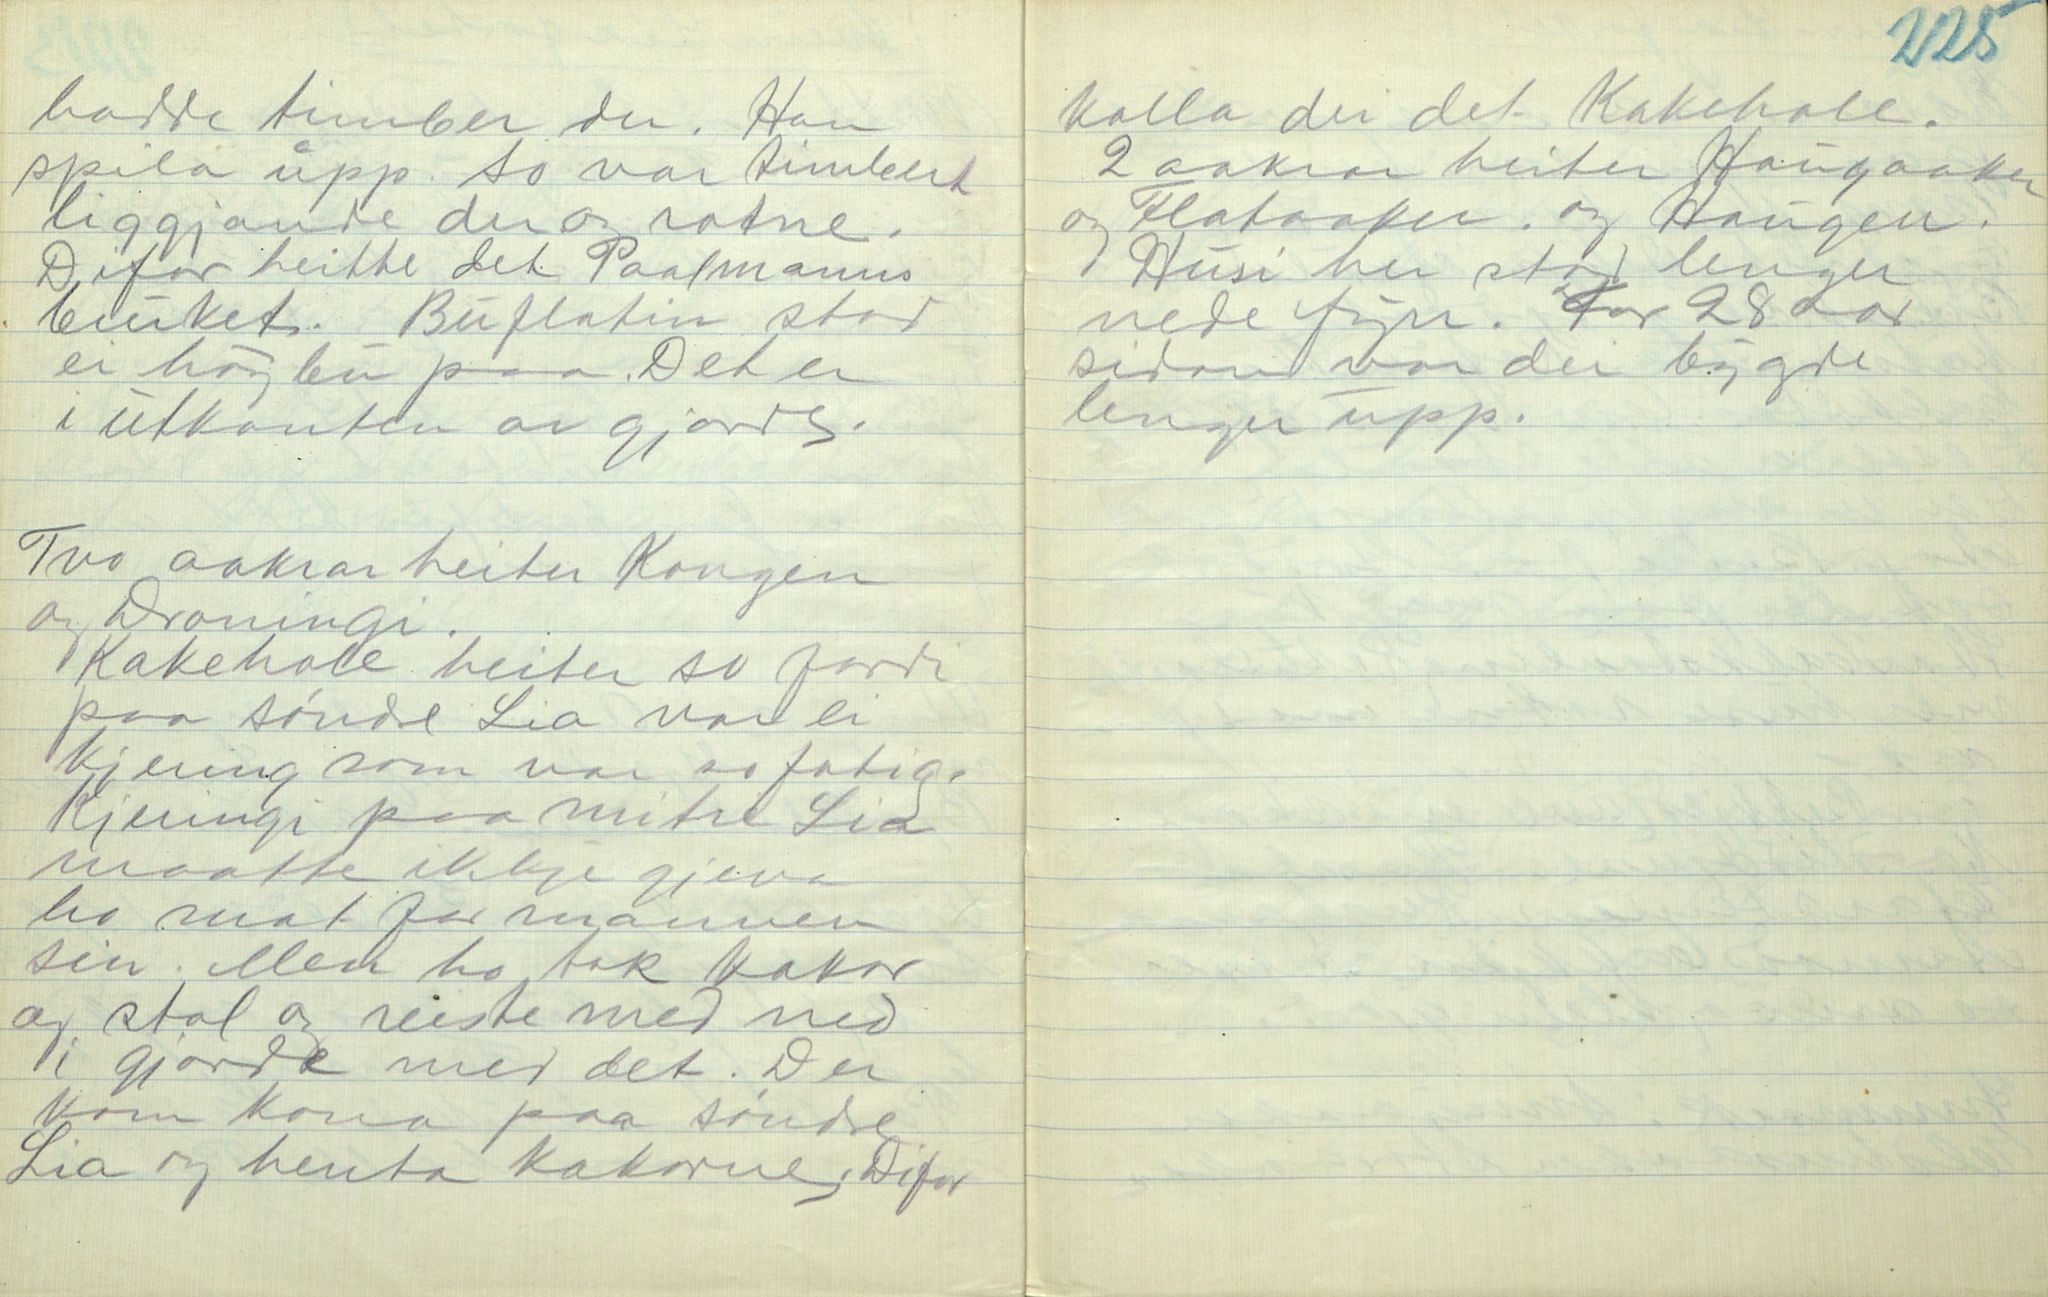 hadde timber der. Han
spila upp. So var timberet
liggjande der og rotne.
Difor heitte det Paalmanns
buket. Buflatin stod
ei høgbu paa. Det er
i utkanten av gjorde.
Tvo aakrar heiter Kongen
og Droningi.
Kakehole heiter so fordi
paa søndre Lia var ei
kjering som var so fatig.
Kjeringi paa mitre Lia
maatte ikkje gjeva
ho mat for mannen
sin. Men ho tok kakor
og stal og reiste med ned
i gjorde med det. Der
kom kona paa søndre
Lia og henta kakorne, Difor
225
kalla dei det Kakehole.
2 aakrar heiter Haugaaker
og Flataaker. og Haugen.
Husi her stod lenger
nede fyrr. For 28 aar
sidan var dei bygde
lenger upp.